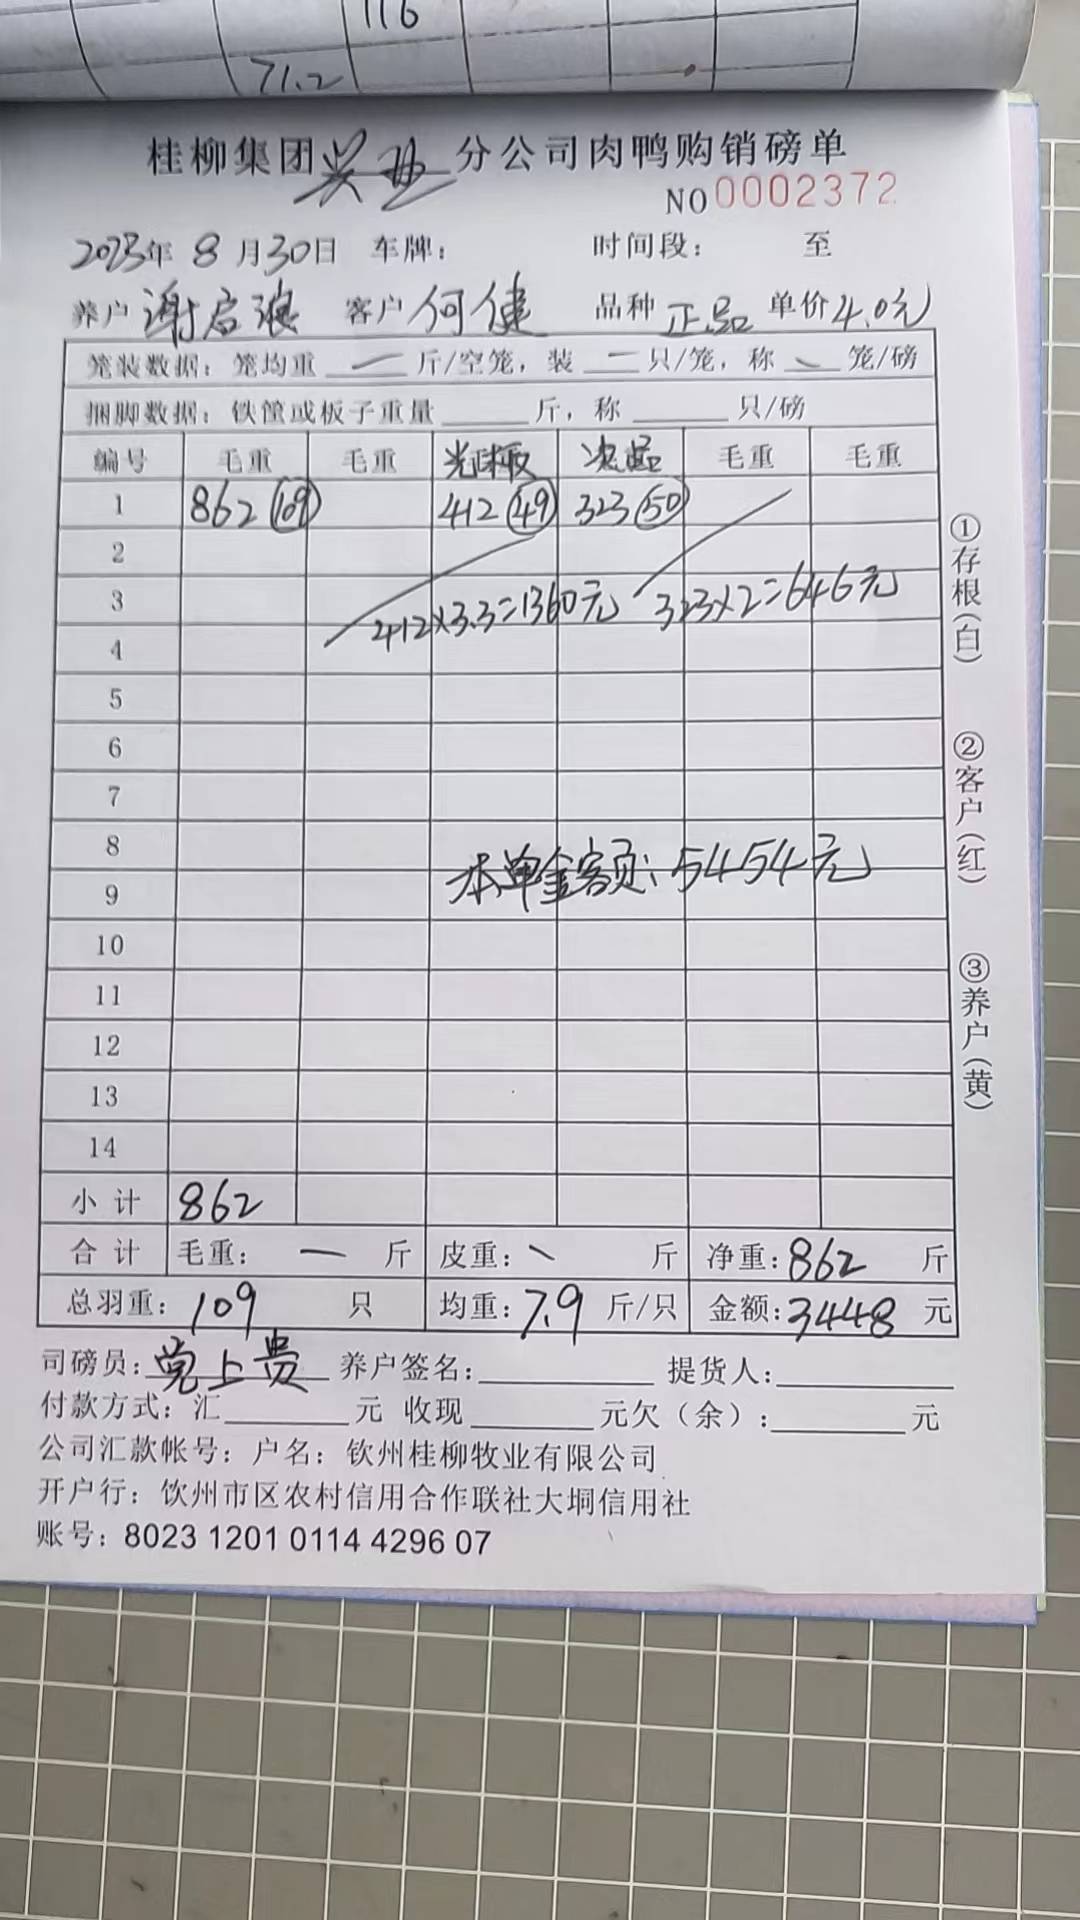 116
71.2
桂柳集团兴业分公司肉鸭购销磅单
NO 0002372
2023年 8 月30日 车牌： 时间段： 至
养户 谢启浪 客户 何健 品种 正品 单价4.0元
笼装数据：笼均重 一 斤/空笼，装 一 只/笼，称 、 笼/磅
捆脚数据：铁筐或板子重量 斤，称 只/磅
编号 毛重 毛重 次品 毛重 毛重
1 862 (109) 412 (49) 323 (50)
2
3
412×3.3=1360元 323×2=646元
4
5
6
7
8
本单金额：5454元
9
10
11
12
13
14
小计 862
合计 毛重： 一 斤 皮重：、 斤 净重：862 斤
总羽重：109 只 均重：7.9 斤/只 金额：3448 元
司磅员：党上贵 养户签名： 提货人：
付款方式：汇 元 收现 元欠（余）： 元
公司汇款帐号：户名：钦州桂柳牧业有限公司
开户行：饮州市区农村信用合作联社大垌信用社
账号：8023 1201 0114 4296 07
①存根(白) ②客户(红) ③养户(黄)